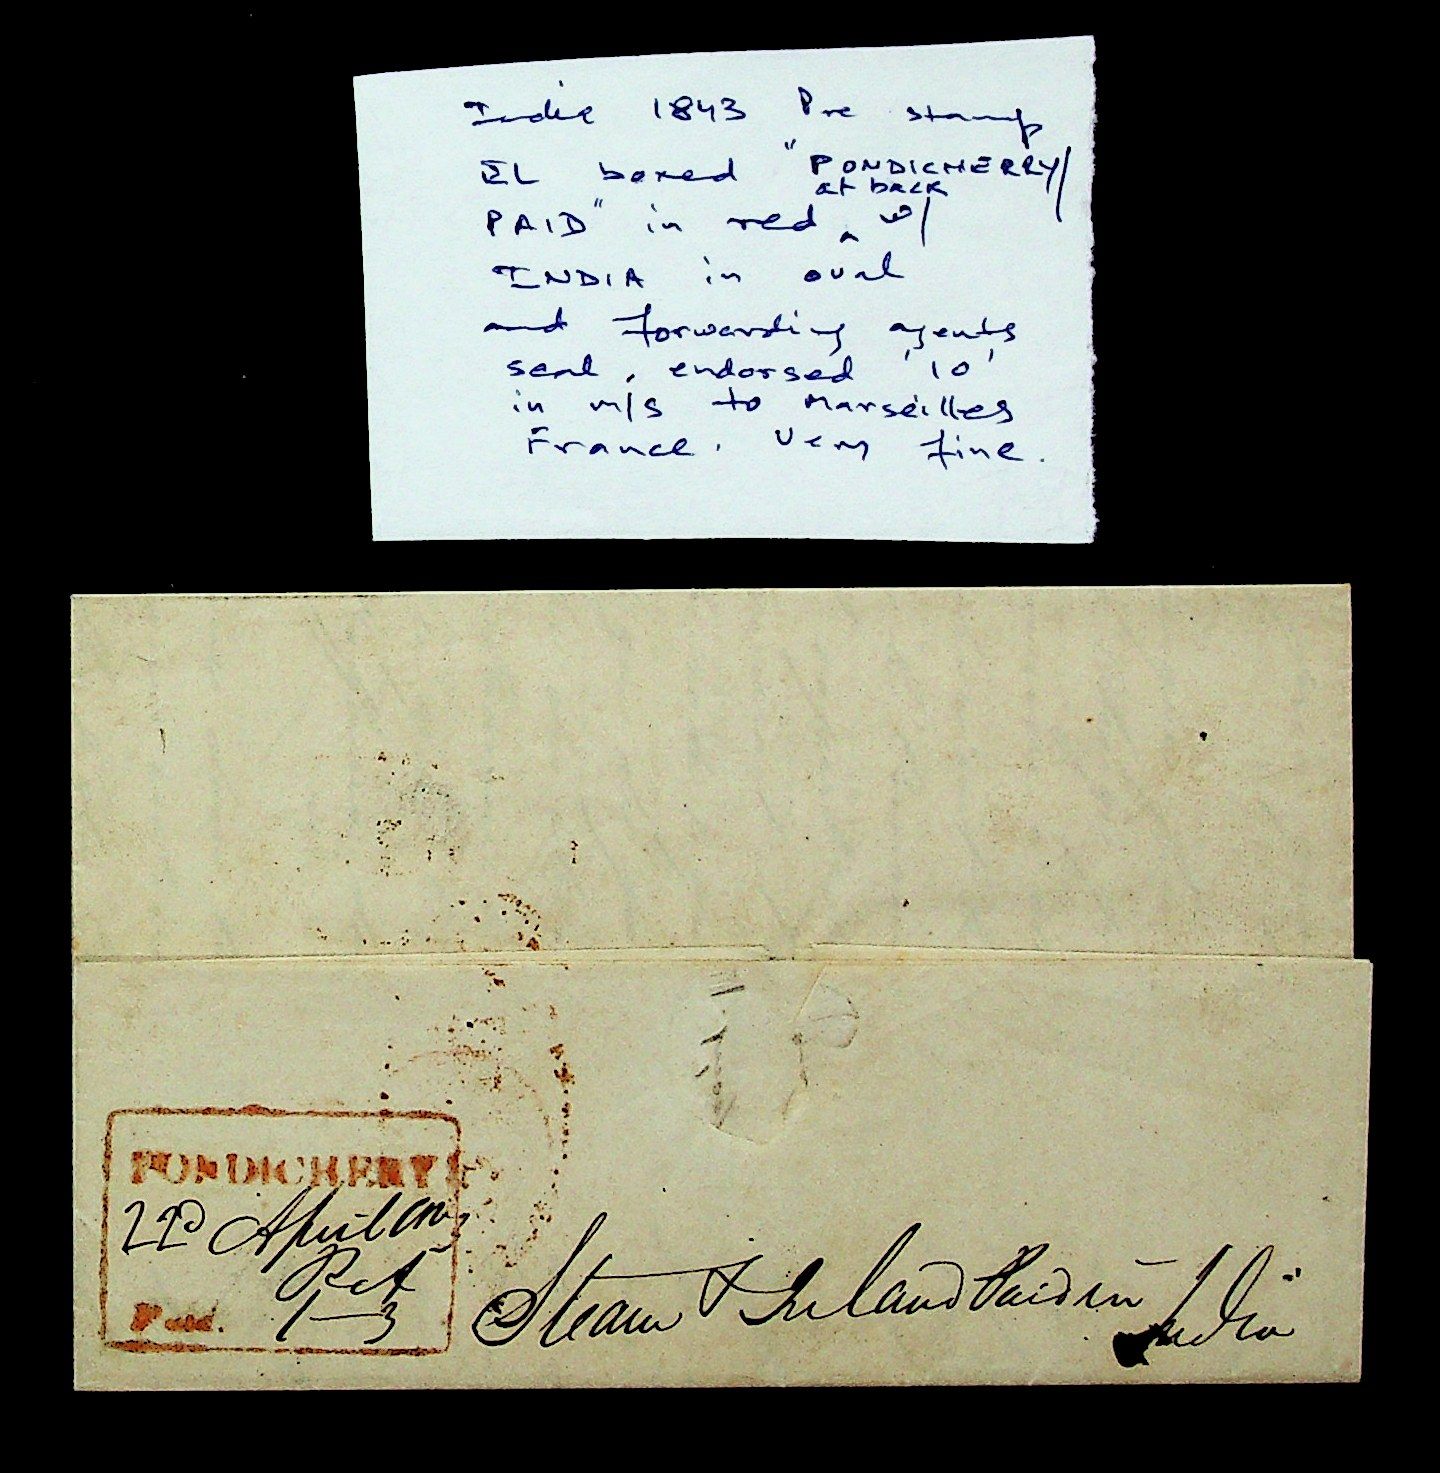 India 1843 Pre stamp
EL boxed "PONDICHERRY/
at back
PAID" in red ^ w/
INDIA in oval
and forwarding agents
seal, endorsed '10'
in m/s to Marseilles
France. Very fine.
PONDICHERY
22d April
Pct
Paid. 1–3
Steam & Inland Paid in
India